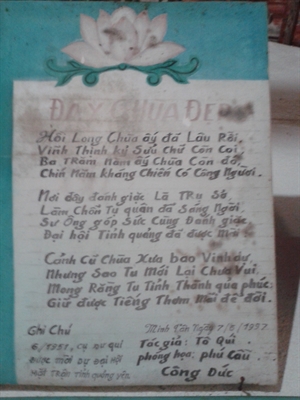 ĐÂY CHÙA ĐẸP
Hồi Long Chùa ấy đã Lâu Rồi,
Vĩnh Thịnh Kỷ Sửu Chữ Còn Coi,
Ba Trăm Năm ấy Chùa Còn đó,
Chín Năm kháng Chiến Có Công Người.
Nơi đây đánh giặc Là Trụ Sở
Làm Chốn Tự quân đã Sáng Ngời.
Sư Ông góp Sức Cùng Đánh giặc,
Đại hội Tỉnh quảng đã được
Cảnh Cũ Chùa Xưa bao Vinh dự
Nhưng Sao Tu Mới Lại Chưa Vui.
Mong Rằng Tu Tỉnh Thành quả phúc
Giữ được Tiếng Thơm Mãi để đời.
Ghi Chú
6/1951, cụ sư quí
Được mời dự đại hội
Mặt Trận Tỉnh quảng yên
Minh Tân Ngày 7/6/1997
Tác giả: Tô Quí
phống họa: phú Cầu
Công Đức